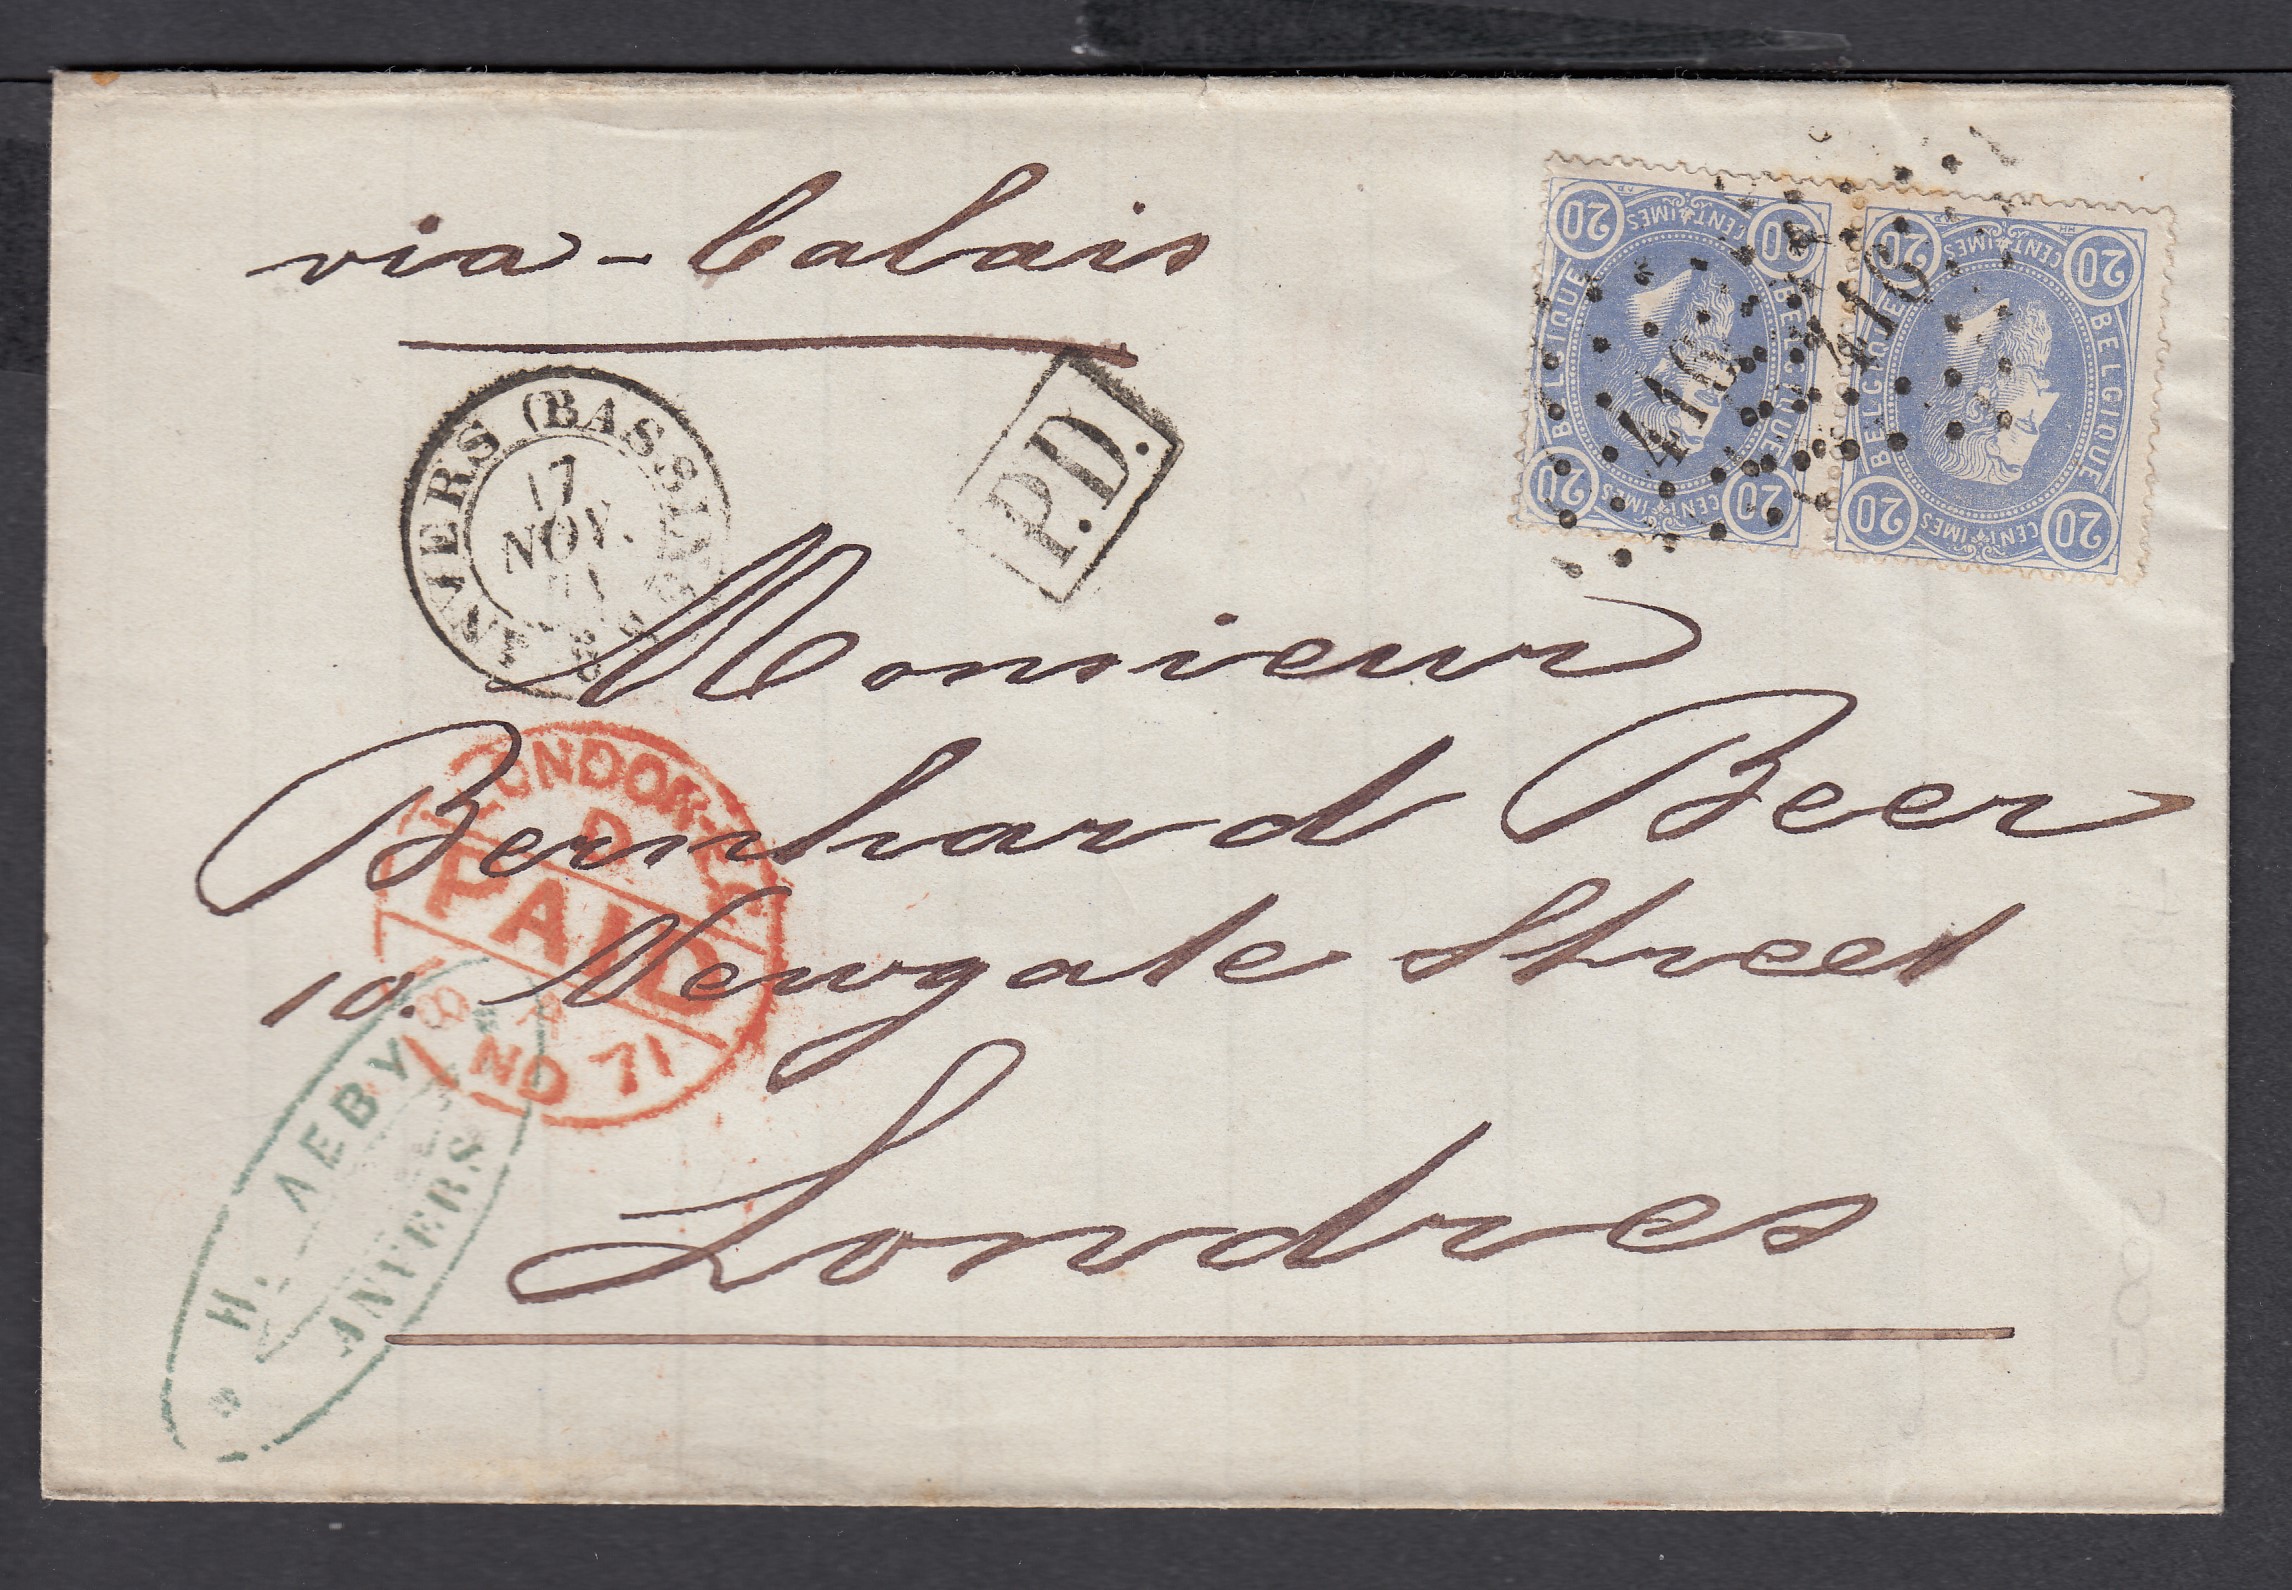 via - Calais
ANVERS (BASSINS)
17
NOV.
71
P.D.
20 CENTIMES 20
BELGIQUE BELGIQUE
20 CENTIMES 20
20 CENTIMES 20
BELGIQUE BELGIQUE
20 CENTIMES 20
416
416
Monsieur
Bernhard Beer
10. Newgate Street
Londres
LONDON-E.C
D
PAID
8 A
NO 71
H. AEBY
ANVERS